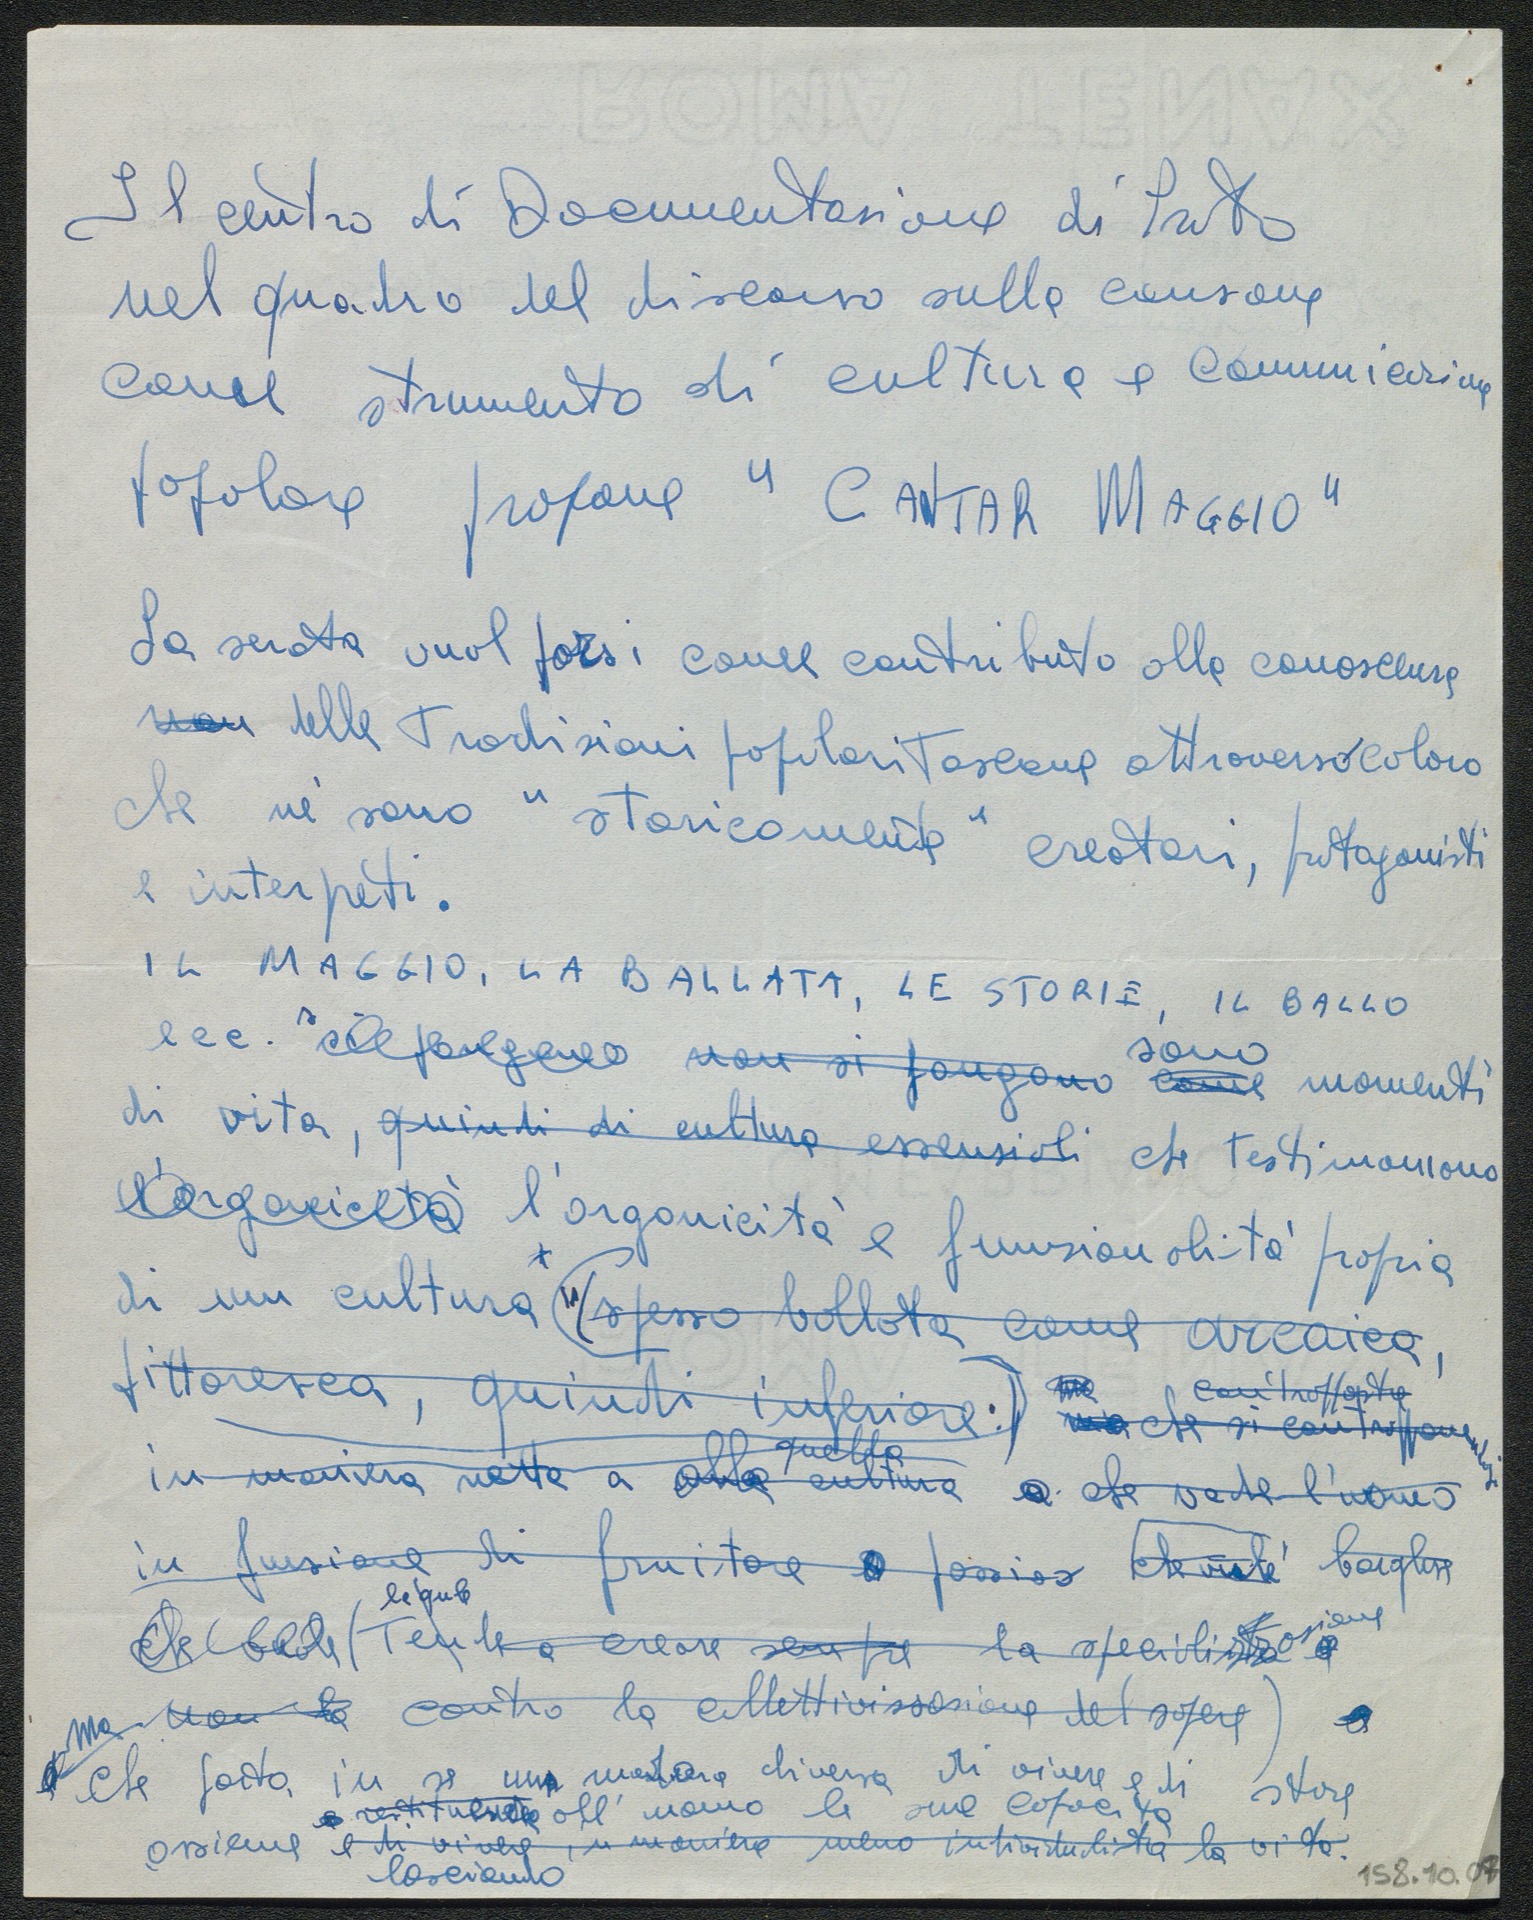 Il centro di Documentazione di Prato
nel quadro del discorso sulla canzone
come strumento di cultura e comunicazione
popolare propone " CANTAR MAGGIO "
La serata vuol porsi come contributo alla conoscenza
non delle Tradizioni popolari Toscane attraverso coloro
che né sono " storicamente " creatori, protagonisti
e interpeti.
IL MAGGIO, LA BALLATA, LE STORIE, IL BALLO
ecc. che pongono non si pongono come sono momenti
di vita, quindi di cultura essenziali che testimoniano
l'organicità l'organicità e funzionalità propia
di un cultura * (spesso bollata come arcaica,
pittoresca, quindi inferiore.) ma che si contrappone contrapposta
in maniera netta a alla cultura quella che vede l'uomo
in funzione di fruitore passivo borghese
che tende a creare sempre la specializzazione e
ma non la contro la collettivizzazione del sapere)
che porta in se una maniera diversa di vivere e di stare
restituendo all'uomo la sua capacità
assieme e di vivere in maniera meno individualista la vita.
lasciando
158.10.07